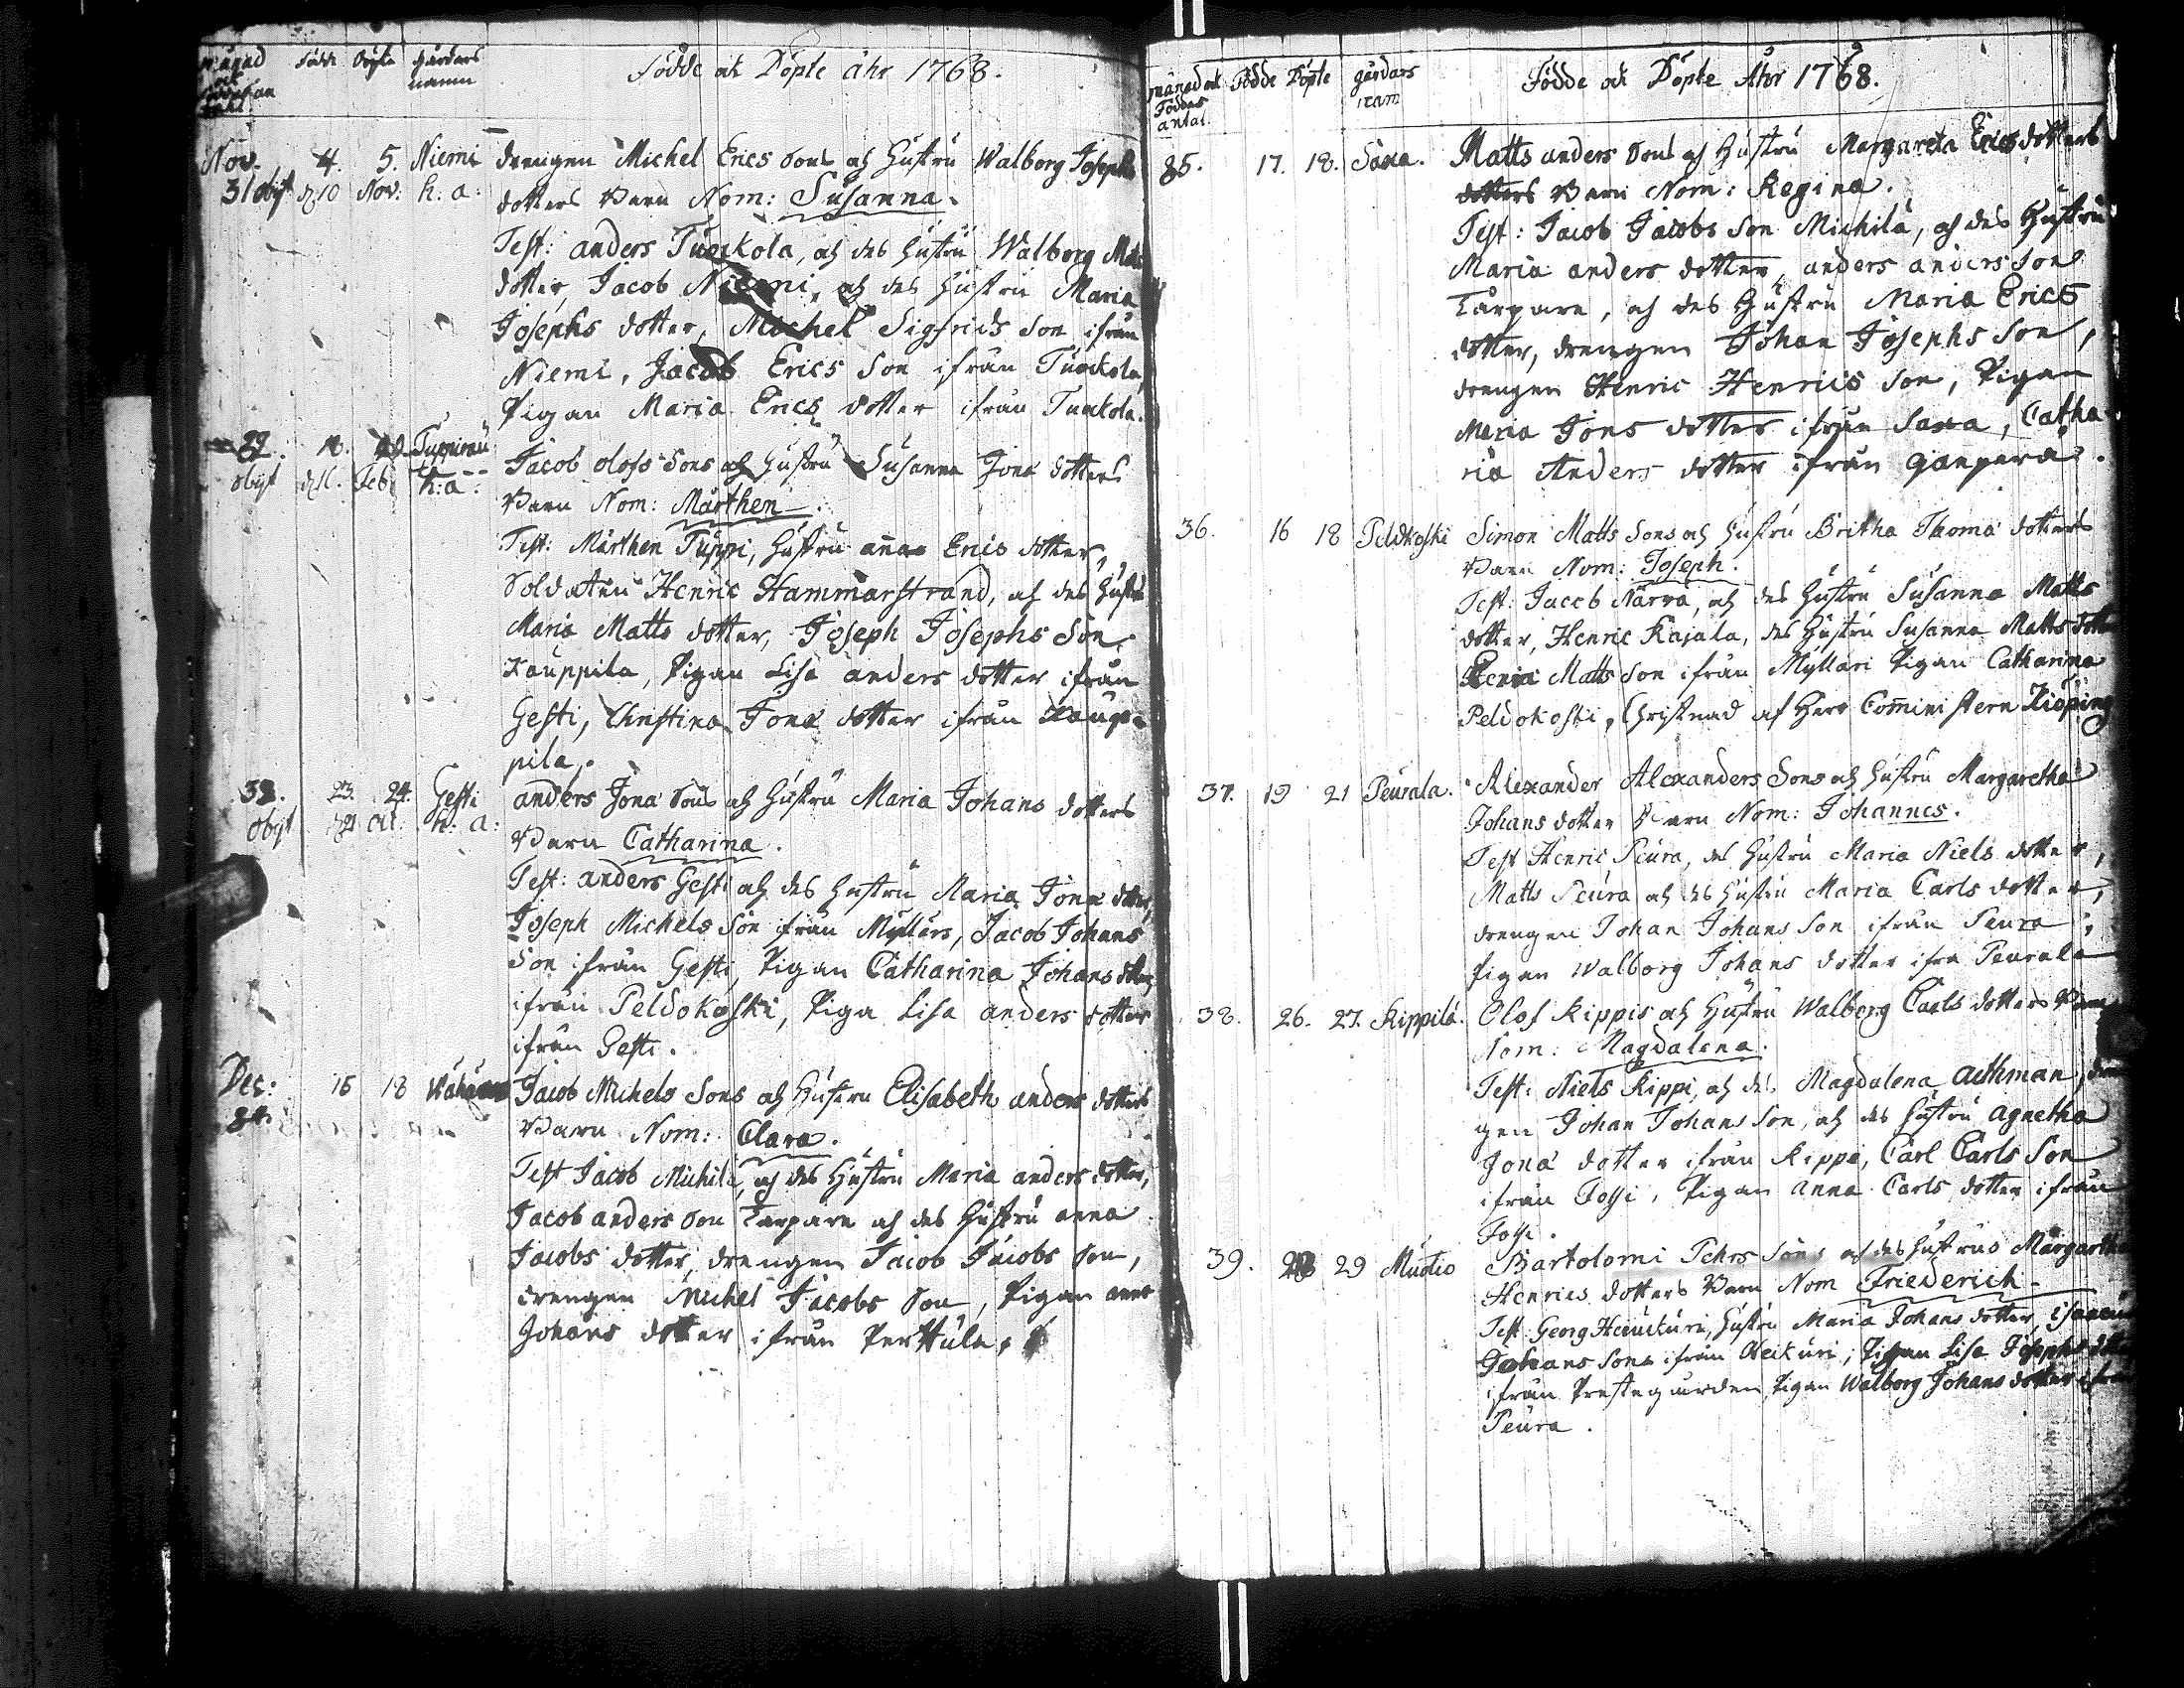 månad Födde Döpte gårdars
ock namn
Födde ock Döpte åhr 1768.
Nov. 4. 5. Niemi drengen Michel Erics Sons och Hustru Walborg Josephs
31 obijt d. 10 Nov: h. a: dotters Barn Nom: Susanna.
Test: anders Tuockola, och des Hustru Walborg
dotter, Jacob Niemi, och des Hustru Maria
Josephs dotter, Michel Sigfrids Son ifrån
Niemi, Jacob Erics Son ifrån Tuockola,
Pigan Maria Erics dotter ifrån Tuokola.
Jacob olofs Sons och Hustru Susanna Jona dotters
obijt Feb. h: a: Barn Nom: Mårthen.
Test: Mårthen Tuppi, Hustru anna Erics dotter,
Soldaten Henric Hammarstrand, och des Hustru
Maria Matts dotter, Joseph Josephs Son
Kauppila, Pigan Lisa anders dotter ifrån
Gesti, Christina Jona dotter ifrån Kaup-
pila.
33. 23. 24. Gesti anders Jona Sons och Hustru Maria Johans dotters
obijt h: a: Barn Catharina.
Test: anders Gesti och des Hustru Maria Jona dotter,
Joseph Michels Son ifrån Myllärs, Jacob Johans
Son ifrån Gesti, Pigan Catharina Johans dotter
ifrån Peldokoski, Piga Lisa anders dotter
ifrån Gesti.
Dec: 16 18 Jacob Michels Sons och Hustru Elisabeth anders dotters
34. Barn Nom: Clara.
Test Jacob Michilä, och des Hustru Maria anders dotter,
Jacob anders Son Tarpare och des Hustru anna
Jacobs dotter, drengen Jacob Jacobs Son,
drengen Michel Jacobs Son, Pigan anna
Johans dotter ifrån Perttula.
månad ock Födde Döpte gårdars
Födder nam
antal.
Födde ock Döpte Åhr 1768.
35. 17. 18. Saxa. Matts anders Sons och Hustru Margareta Ericsdotters
dotters Barn Nom: Regina.
Test: Jacob Jacobs Son Michilä, och des Hustru
Maria anders dotter, anders anders Son
Tarpare, och des Hustru Maria Erics
dotter, drengen Johan Josephs Son,
drengen Henric Henrics Son, Pigan
Maria Jons dotter ifrån Saxa, Catha
ria Anders dotter ifrån
36. 16 18 Peldkoski Simon Matts Sons och Hustru Britha Thoma dotters
Barn Nom: Joseph.
Test: Jacob Närva, och des Hustru Susanna Matts
dotter, Henric Kajala, des Hustru Susanna Matts dotter
Matts Son ifrån Myllari Pigan Catharina
Peldokoski, Christnad af Herr Comministern Kiöping
37. 19 21 Peurala. Alexander Alexanders Sons och Hustru Margaretha
Johans dotter Barn Nom: Johannes.
Test Henric Peura, des Hustru Maria Niels dotter,
Matts Peura och des Hustru Maria Carls dotter,
drengen Johan Johans Son ifrån Peura;
Pigan Walborg Johans dotter ifrå Peurala
38. 26. 27. Kippilä. Olof Kippis och Hustru Walborg Carls dotters Barn
Nom: Magdalena.
Test: Niels Kippi, och des Magdalena Aethman, dren
gen Johan Johans Son, och des Hustru Agnetha
Jona dotter ifrån Kippi, Carl Carls Son
ifrån Fossi, Pigan Anna Carls dotter ifrån
Fossi.
39. 28 29 Mustio Bartolomi Pehrs Sons och des Hustrus Margaretha
Henrics dotters Barn Nom Friederich.
Test: Georg Hauckuri, Hustru Maria Johans dotter,
Johans Sons ifrån Pigan Lisa Josephs dotter
ifrån Prestegården, Pigan Walborg Johans dotter ifrån
Peura.